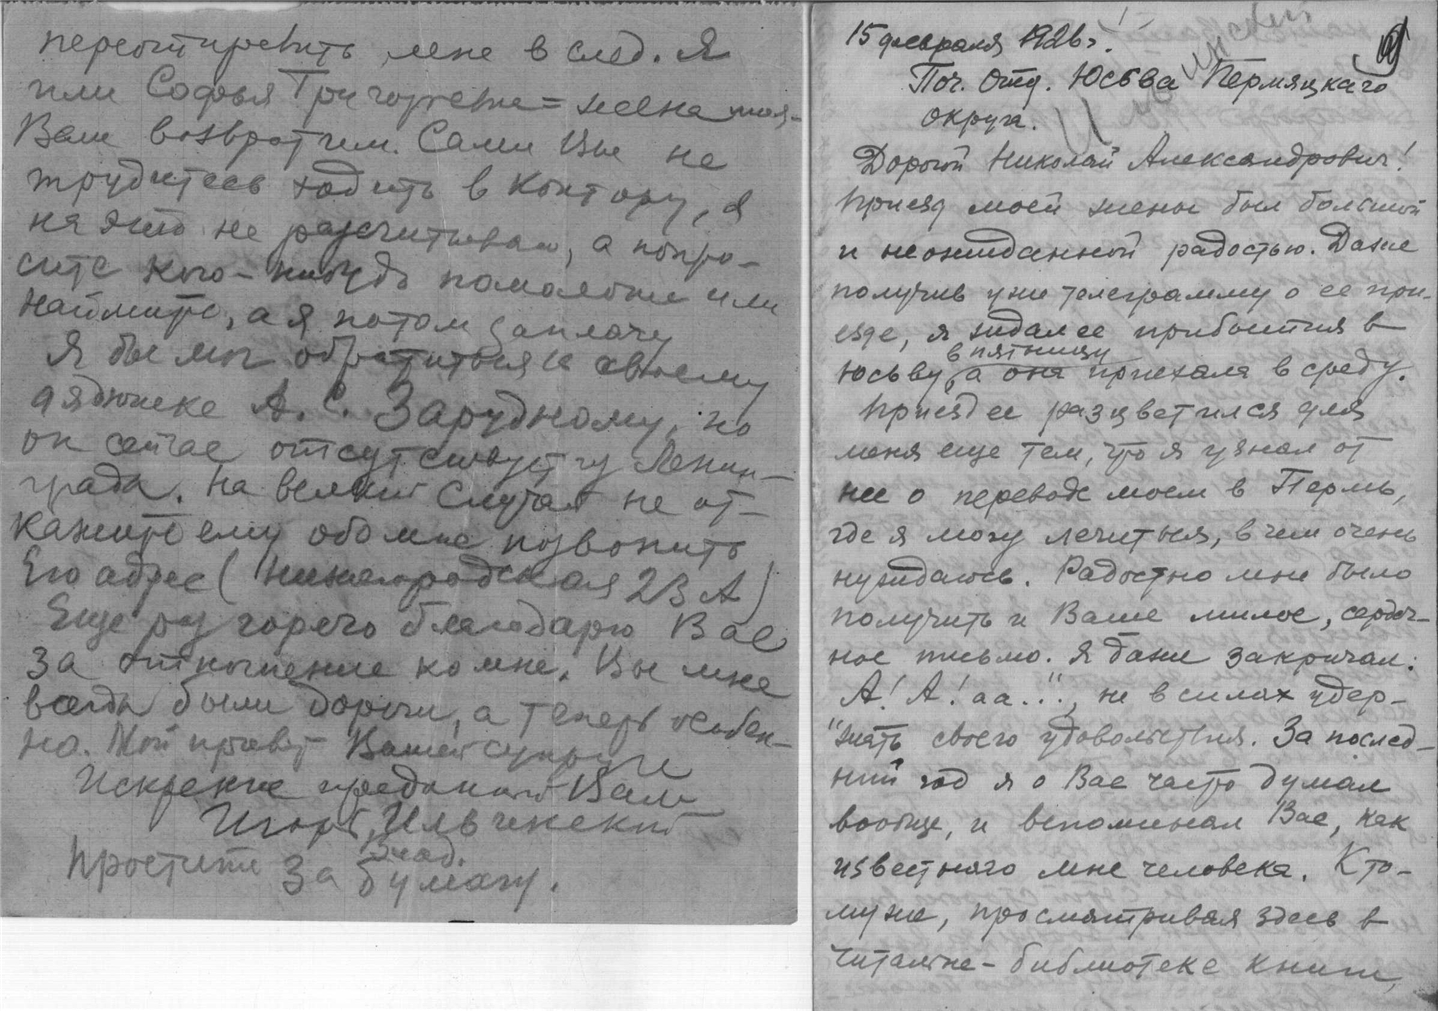 пересматривать мне в след. Я
или Софья Григорьевна = жена моя –
Вам возвратим. Сами Вы не
трудитесь ходить в контору, я
на это не рассчитываю, а попро–
сите кого-нибудь помоложе или
наймите, а я потом заплачу
Я бы мог обратиться к своему
дядюшке А. С. Зарудному, но
он сейчас отсутствует из Ленин–
града. На всякий случай не от–
кажите ему обо мне позвонить
Его адрес (Нижегородская 23 А)
Еще раз горячо благодарю Вас
за отношение ко мне. Вы мне
всегда были дороги, а теперь особен–
но. Мой привет Вашей супруге
Искренне преданный Вам
Игорь Ильинский
Простите за бумагу.
15 февраля 1926 г.
Поч. отд. Юсьва Пермяцкаго
округа.
Дорогой Николай Александрович!
Приезд моей жены был большой
и неожиданной радостью. Даже
получив уже телеграмму о ее при–
езде, я ждал ее прибытия в
Юсьву в пятницу, а она приехала в среду.
Приезд ее разцветился для
меня еще тем, что я узнал от
нее о переводе моем в Пермь,
где я могу лечиться, в чем очень
нуждаюсь. Радостно мне было
получить и Ваше милое, сердеч–
ное письмо. Я даже закричал:
"А! А! аа!..", не в силах удер–
жать своего удовольствия. За послед–
ний год я о Вас часто думал
вообще, и вспоминал Вас, как
известного мне человека. К то–
му же, просматривая здесь в
читальне-библиотеке книги,